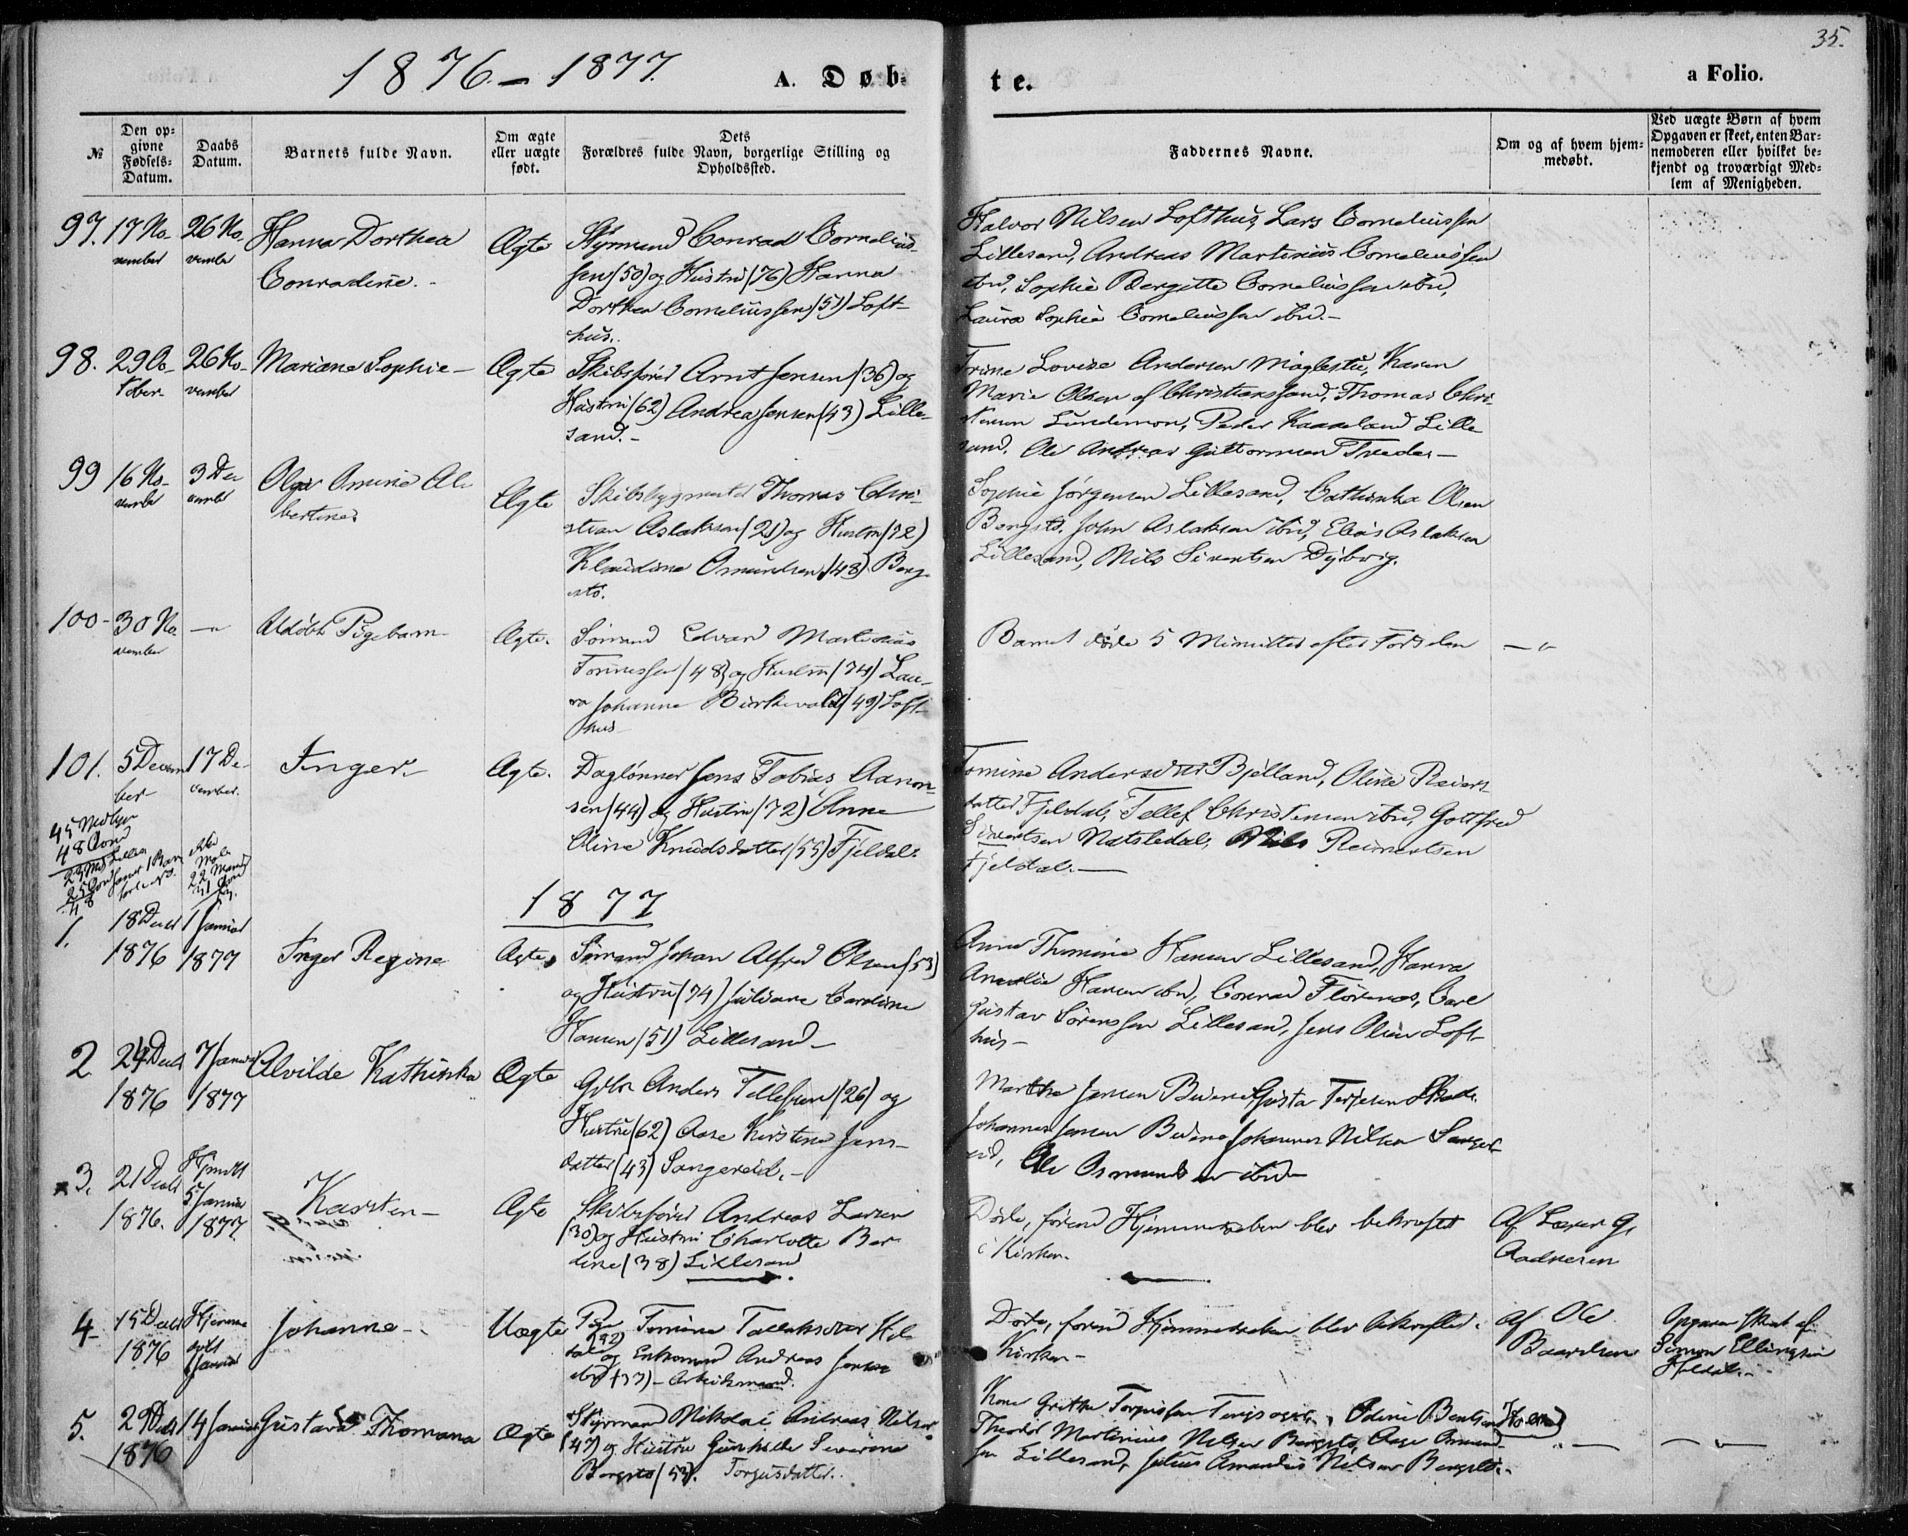 1876 - 1877.
A. Døb-
te.
a Folio.
35.
№
Den op-
givne
Fødsels-
Datum.
Daabs
Datum.
Barnets fulde Navn.
Om ægte
eller uægte
født.
Dets
Forældres fulde Navn, borgerlige Stilling og
Opholdssted.
Faddernes Navne.
Om og af hvem hjem-
medøbt.
Ved uægte Børn af hvem
Opgaven er skeet, enten Bar-
nemoderen eller hvilket be-
kjendt og troværdigt Med-
lem af Menigheden.
97. 17 No-
vember
26 No-
vember
Hanna Dorthea
Conradine.
Ægte
Styrmand Conrad Cornelius-
sen (50) og Hustru (76) Hanna
Dorthea Corneliussen (51) Loft-
hus.
Halvor Nilsen Lofthus, Lars Corneliussen
Lillesand, Andreas Martinius Corneliussen
ibid, Sophie Bergitte Corneliussen ibid,
Laura Sophie Corneliussen ibid.
98. 29 Oc-
tober
26 No-
vember
Mariane Sophie
Ægte
Skibsfører Arnt Jensen (36) og
Hustru (62) Andrea Jensen (43) Lille-
sand.
Trine Lovise Andersen Møglestu, Karen
Marie Olsen af Christianssand, Thomas Chri-
stensen Peder Kaaseland Lille
sand, Ole Andreas Guttormsen
99 16 No-
vember
3 De
cember
Olga Omine Al-
bertine
Ægte
Skibsbygmester Thomas Chri-
stian Aslaksen (21) og Hustru (72)
Klaudine Omundsen (48) Berg-
stø.
Sophie Jørgensen Lillesand, Cathinka Olsen
Bergstø, John Aslaksen ibid, Elias Aslaksen
Lillesand, Nils Sivertsen Dybvig.
100 - 30 No-
vember
Udøbt Pigebarn
Ægte.
Sømand Edvard Martinius
Tønnessen (48) og Hustru (74) Lau-
ra Johanne Birkevold (49) Loft-
hus
Barnet døde 5 Minutter efter Fødselen
101. 5 Decem
ber
17 De-
cember.
Inger.
Ægte.
Daglønner Jens Tobias Aanon-
sen (44) og Hustru (72) Anne
Oline Knudsdatter (55) Fjeldal.
Tomine Andersdatter Bjelland, Oline Reiers
datter Fjeldal, Tellef Christensen ibid, Gottfred
Sivertsen Natsledal, Nils Reinertsen
Fjeldal.
1877
1. 18 Decbr
1876
1 Januar
1877
Inger Regine
Ægte
Sømand Johan Alfred Olsen (53)
og Hustru (74) Juliane Caroline
Hansen (51) Lillesand
Anne Thomine Hansen Lillesand, Hanna
Amalie Hansen ibid, Conrad Florenæs, Carl
Gustav Sørenssen Lillesand, Jens Olsen Loft-
hus
2 24 Decbr
1876
7 Januar
1877
Alvilde Kathinka
Ægte
Gbr. Anders Tellefsen (26) og
Hustru (62) Aase Kirstine Jens-
datter (43) Sangereid.
Marthe Jensen Gusta Terjesen
Johannes Jensen Johannes Nilsen Sanger-
eid, Ole Osmundsen ibid
3. 21 Decbr
1876.
Hjmdbt
5 Januar
1877
Karsten
Ægte
Skibsfører Andreas Larsen
(30) og Hustru Charlotte Ber-
dine (38) Lillesand
Døde, førend Hjemmedaaben blev bekræftet
i Kirken.
Af Lærer G.
Aadnesen
4. 15 Decbr
1876
Hjemme
døbt
Januar
Johanne
Uægte
Pige Tomine Tallaksdatter
og Enkemand Andreas Jensen
ibid (37) - Arbeidsmand.
Døde, førend Hjemmedaaben blev bekræftet i
Kirken
af Ole
Baardsen
Opgaven skeet af
Simon Ellingsen
5. 29 Decbr
1876
14 Januar
Gustava Thomana
Ægte
Styrmand Nikolai Andreas Nilsen
(47) og Hustru Gunhilde Severine
Bergstø (53). Torgusdatter.
Kone Grethe Torgussen Odine Bentsen
Theodor Martinius Nilsen Bergstø, Aage
sen Lillesand, Julius Amandus Nilsen Bergstø.